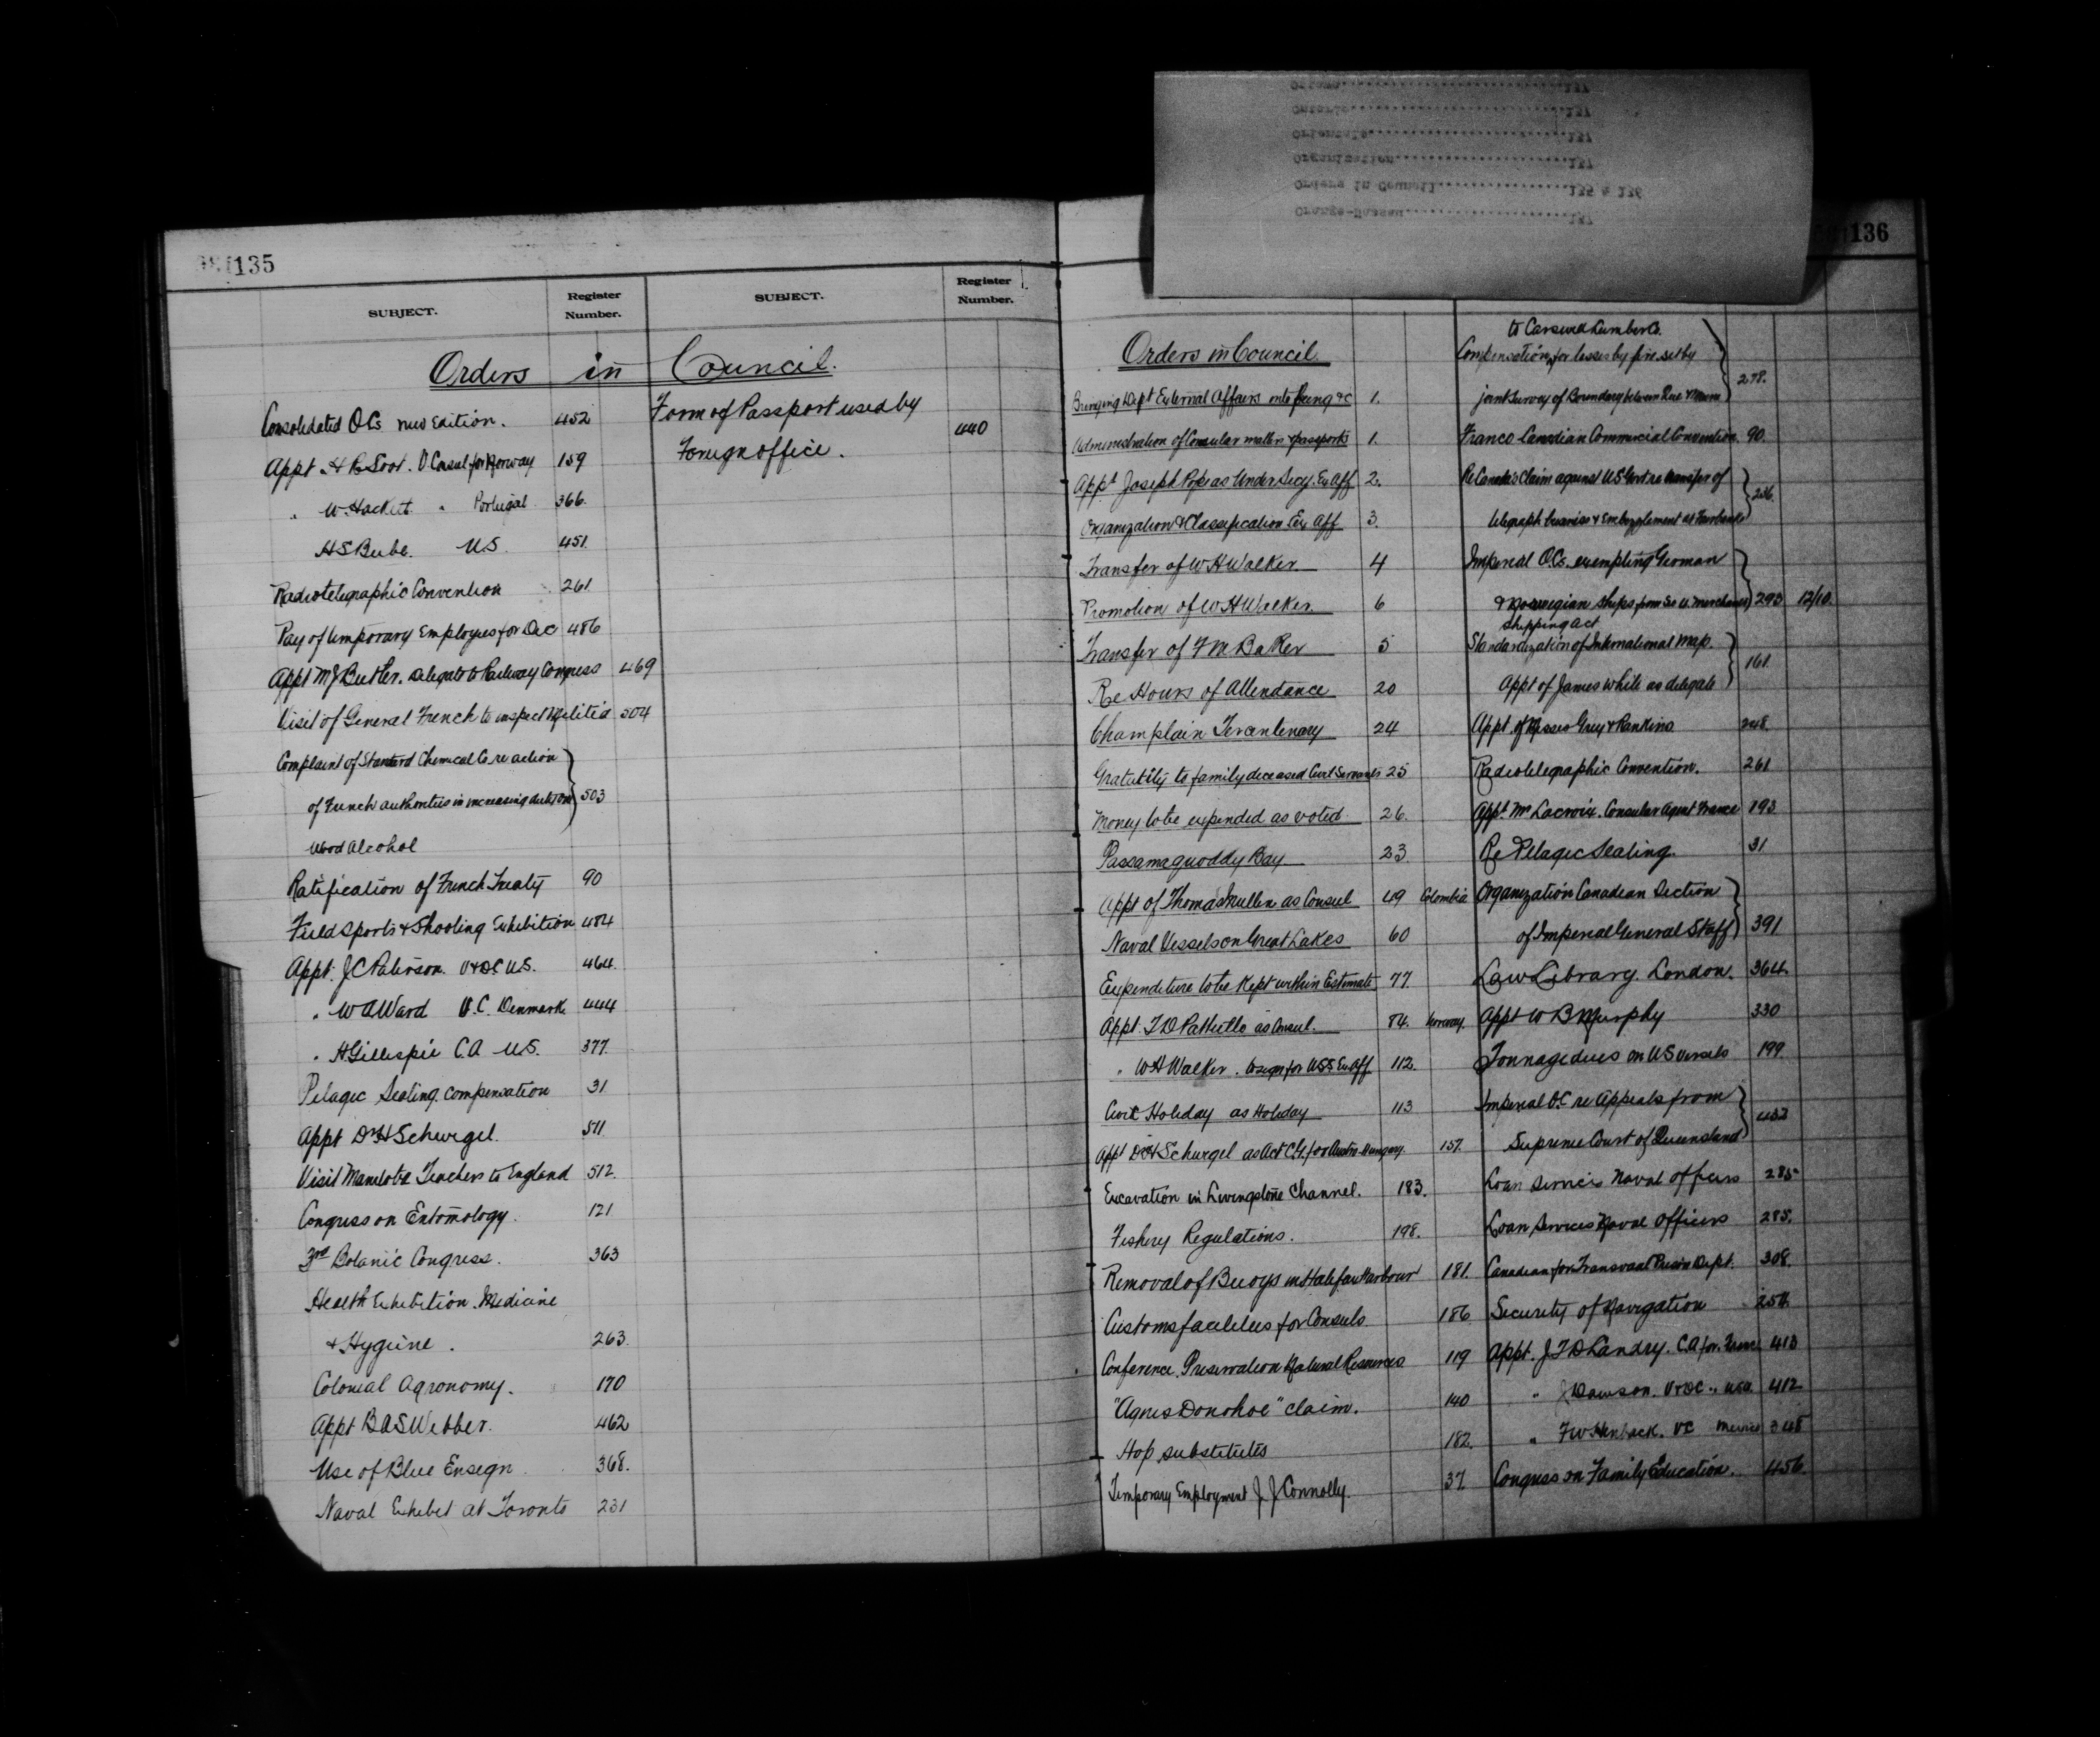 135
SUBJECT. Register Number. SUBJECT. Register Number.
Orders in Council.
Consolidated O.Cs new Edition. 452
Appt H R Loot. V Consul for Norway 159
" W. Hackett " Portugal 366.
H S Bube. U.S. 451.
Radiotelegraphic Convention 261.
Pay of temporary Employees for Dec 486
Appt M J Butler. delegate to Railway Congress 469
Visit of General French to inspect Militia 504
Complaint of Standard Chemical Co. re action
of French authorities in increasing duties on } 503
Wood Alcohol
Ratification of French Treaty 90
Field Sports & Shooting Exhibition 484
Appt. J C Paterson. V & D C U.S. 464.
" W A Ward V.C. Denmark 444
" A Gillespie C.A U.S. 377.
Pelagic Sealing. compensation 31
Appt Dr H Schwegel. 511.
Visit Manitoba Teachers to England 512.
Congress on Entomology. 121
3rd Botanic Congress. 363
Health Exhibition. Medicine
& Hygiene. 263
Colonial Agronomy. 170
Appt B A S Webber. 462
Use of Blue Ensign 368.
Naval Exhibit at Toronto 231
Form of Passport used by
Foreign office. 440
136
Ottawa 137
Ontario 137
Orientals 137
Organization 137
Orders in Council 135 & 136
Orange-Nassau 137
Orders in Council.
Bringing Dept External Affairs into being &c 1.
Administration of Consular matters & passports 1.
Appt Joseph Pope as Under Secy. Ex Aff 2.
Organization & Classification Ex Aff 3.
Transfer of W H Walker 4
Promotion of W H Walker 6
Transfer of F M Baker 5
Re Hours of Attendance 20
Champlain Tercentenary 24
Gratuity to family deceased Civil Servants 25
Money to be expended as voted. 26.
Passamaquoddy Bay 23
Appt of Thomas Mullen as Consul 49 Colombia
Naval Vessels on Great Lakes 60
Expenditure to be Kept within Estimate 77.
Appt. T D Pattullo as Consul. 84. Norway.
" W H Walker. to sign for U S S Ex Aff. 112.
Civic Holiday as Holiday 113
Appt Dr H Schwegel as Act C.G. for Austro-Hungary. 157.
Excavation in Livingstone Channel. 183.
Fishery Regulations. 198.
Removal of Buoys in Halifax Harbour 181.
Customs facilities for Consuls 186
Conference. Preservation Natural Resources 119
"Agnes Donohoe" claim. 140
Hop substitutes 182.
Temporary Employment J. J. Connolly. 37.
to Carswell Lumber Co.
Compensation for losses by fire set by
joint Survey of Boundary between Que & Maine } 278.
Franco Canadian Commercial Convention. 90.
Re Canada's Claim against U S Govt. re transfer of
telegraph business & Embezzlement at Fairbanks } 236.
Imperial O.Cs. exempting German
& Norwegian Ships from Merchant } 293 12/10.
Shipping Act
Standardization of International Map.
Appt of James White as delegate } 161.
Appt. of Messrs Grey & Rankins 248.
Radiotelegraphic Convention. 261
Appt. Mr Lacroix. Consular Agent France 193
Re Pelagic Sealing. 31
Organization Canadian Section
of Imperial General Staff } 391
Law Library. London. 364.
Appt W B Murphy 330
Tonnage dues on U S Vessels 199
Imperial O.C re Appeals from
Supreme Court of Queensland } 433
Loan Services Naval officers 285
Loan Services Naval Officers 285.
Canadian for Transvaal Prison Dept. 308.
Security of Navigation 254.
Appt. J T D Landry. C.A for. France 413
" J Dawson. V & D C. " USA. 412
" F W V C Mexico 348
Congress on Family Education. 456.